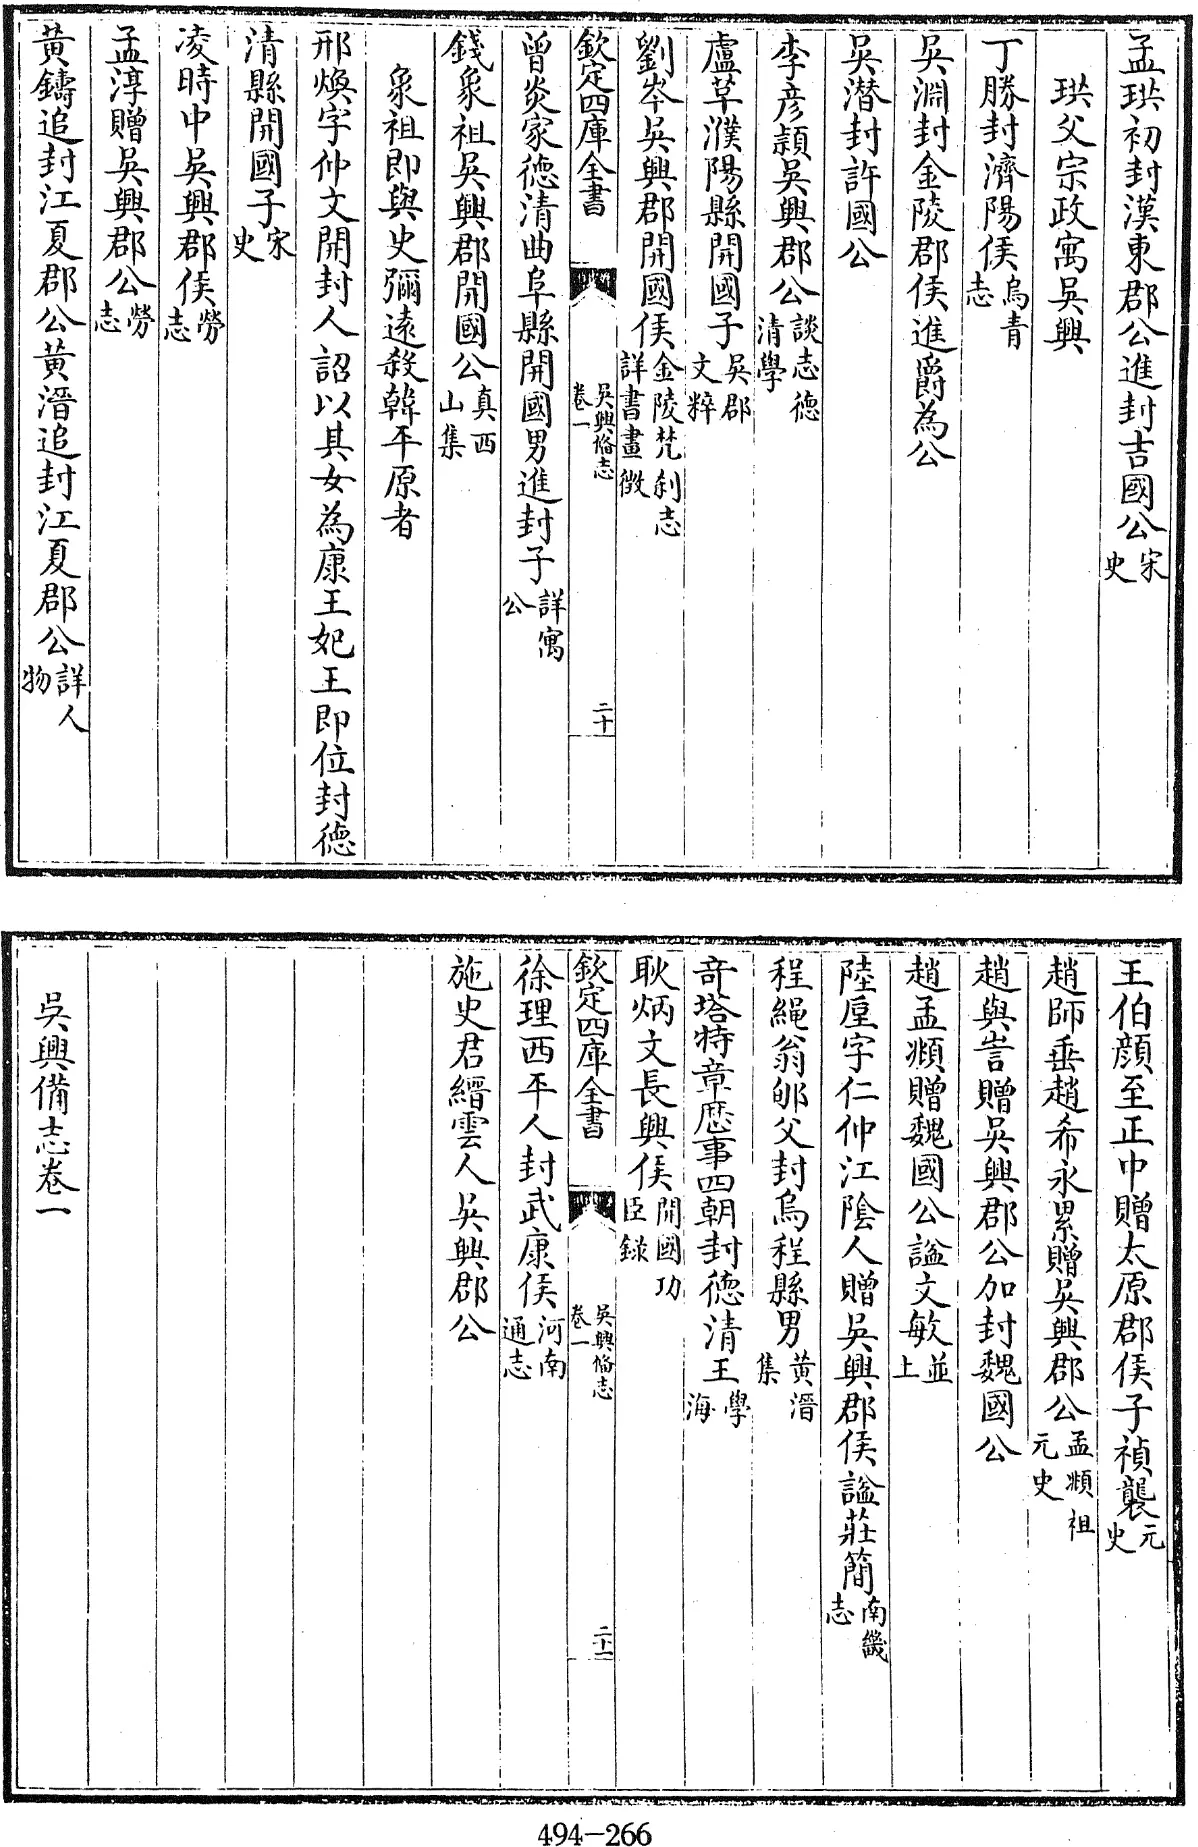 孟珙初封漢東郡公進封吉國公宋史
珙父宗政寓吳興
丁勝封濟陽侯烏青志
吳淵封金陵郡侯進爵為公
吳潛封許國公
李彥頴吳興郡公談志德清學
盧革濮陽縣開國子吳郡文粹
劉岑吳興郡開國侯金陵梵刹志詳書畫徴
欽定四庫全書
吳興備志卷一
二十
曾炎家德清曲阜縣開國男進封子詳寓公
錢象祖吳興郡開國公真西山集
象祖即與史彌遠殺韓平原者
邢煥字仲文開封人詔以其女為康王妃王即位封德
清縣開國子宋史
凌時中吳興郡侯勞志
孟淳贈吳興郡公勞志
黃鑄追封江夏郡公黃溍追封江夏郡公詳人物
王伯顔至正中贈太原郡侯子禎襲元史
趙師垂趙希永累贈吳興郡公孟頫祖元史
趙與訔贈吳興郡公加封魏國公
趙孟頫贈魏國公諡文敏並上
陸垕字仁仲江陰人贈吳興郡侯諡莊簡南畿志
程繩翁郇父封烏程縣男黃溍集
竒塔特章歴事四朝封德清王學海
耿炳文長興侯開國功臣録
欽定四庫全書
吳興備志卷一
二十一
徐理西平人封武康侯河南通志
施史君縉雲人吳興郡公
吳興備志卷一
494-266